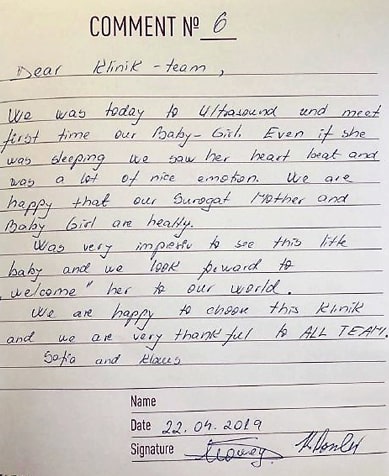 COMMENT № 6
Dear Klinik - team,
We was today to Ultrasound und meet
first time our Baby-Girl. Even if she
was sleeping we saw her heart beat and
was a lot of nice emotion. We are
happy that our Surogat Mother and
Baby Girl are healty.
Was very impresiv to see this little
baby and we look forward to
„welcome" her to our world.
We are happy to choose this Klinik
and we are very thankful to ALL TEAM.
Sofia and Klaus
Name
Date 22.04.2019
Signature